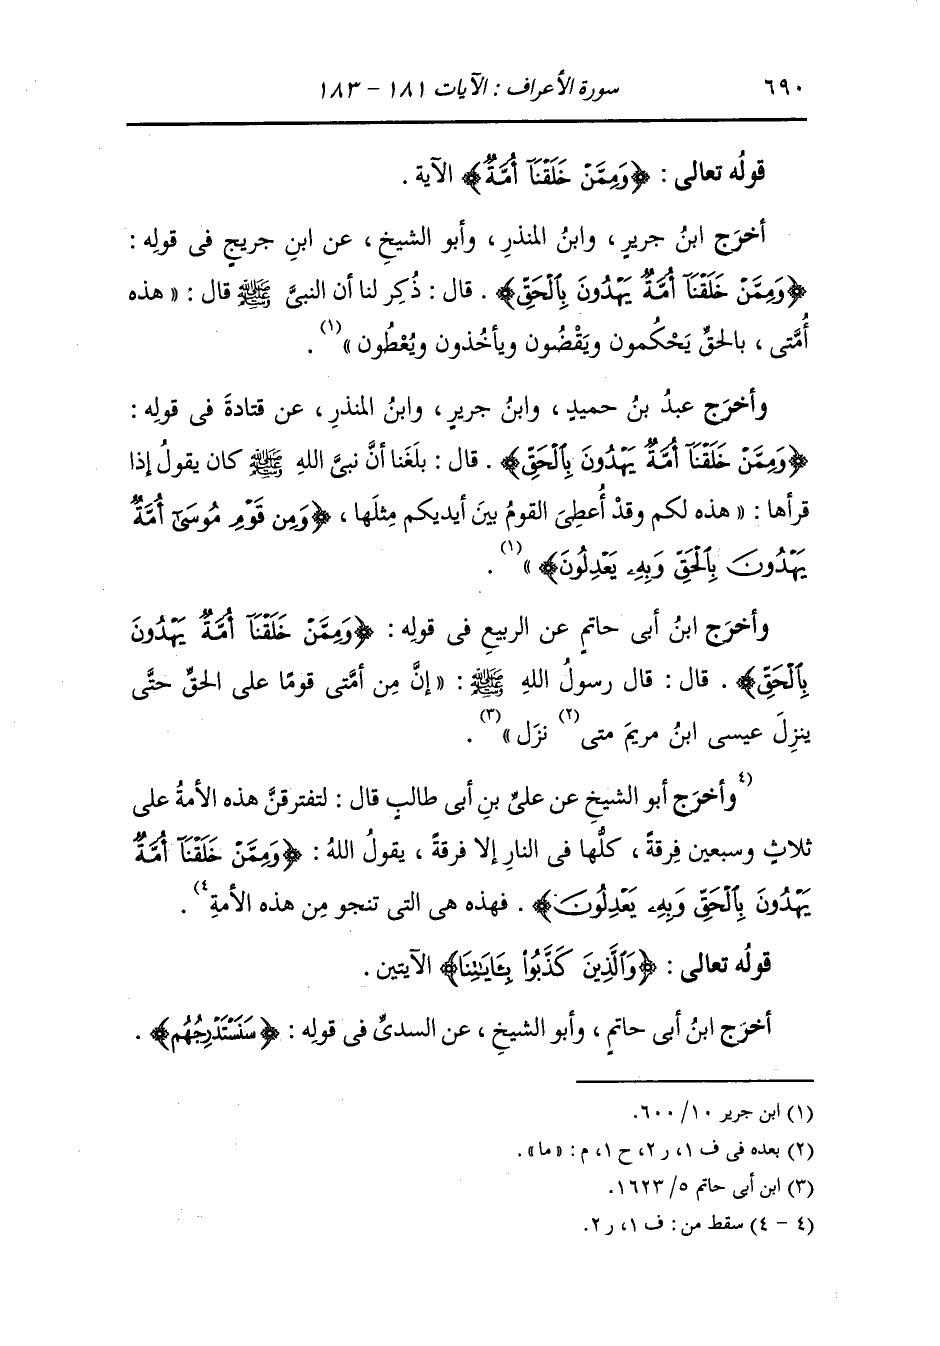 ٦٩٠ سورة الأعراف : الآيات ١٨١ - ١٨٣
قولُه تعالى : ﴿وَمِمَّنْ خَلَقْنَآ أُمَّةٌ﴾ الآية .
أخرَج ابنُ جريرٍ ، وابنُ المنذرِ ، وأبو الشيخِ ، عن ابنِ جريجٍ فى قولِه :
﴿وَمِمَّنْ خَلَقْنَآ أُمَّةٌ يَهْدُونَ بِٱلْحَقِّ﴾ . قال : ذُكِر لنا أن النبىَّ ﷺ قال : « هذه
أُمَّتى ، بالحقِّ يَحْكُمون ويَقْضُون ويأخُذون ويُعْطُون »(١) .
وأخرَج عبدُ بنُ حميدٍ ، وابنُ جريرٍ ، وابنُ المنذرِ ، عن قتادةَ فى قولِه :
﴿وَمِمَّنْ خَلَقْنَآ أُمَّةٌ يَهْدُونَ بِٱلْحَقِّ﴾ . قال : بلَغَنا أنَّ نبىَّ اللهِ ﷺ كان يقولُ إذا
قرأها : « هذه لكم وقدْ أُعطِىَ القومُ بينَ أيديكم مِثلَها ، ﴿وَمِن قَوْمِ مُوسَىٰٓ أُمَّةٌ
يَهْدُونَ بِٱلْحَقِّ وَبِهِۦ يَعْدِلُونَ﴾ »(١) .
وأخرَج ابنُ أبى حاتمٍ عن الربيعِ فى قولِه : ﴿وَمِمَّنْ خَلَقْنَآ أُمَّةٌ يَهْدُونَ
بِٱلْحَقِّ﴾ . قال : قال رسولُ اللهِ ﷺ : « إنَّ مِن أمَّتى قومًا على الحقِّ حتَّى
ينزِلَ عيسى ابنُ مريمَ متى(٢) نزَل »(٣) .
(٤وأخرَج أبو الشيخِ عن علىِّ بنِ أبى طالبٍ قال : لتفترقنَّ هذه الأمةُ على
ثلاثٍ وسبعين فِرقةً ، كلُّها فى النارِ إلا فرقةً ، يقولُ اللهُ : ﴿وَمِمَّنْ خَلَقْنَآ أُمَّةٌ
يَهْدُونَ بِٱلْحَقِّ وَبِهِۦ يَعْدِلُونَ﴾ . فهذه هى التى تنجو مِن هذه الأمةِ٤) .
قولُه تعالى : ﴿وَٱلَّذِينَ كَذَّبُوا۟ بِـَٔايَـٰتِنَا﴾ الآيتين .
أخرَج ابنُ أبى حاتمٍ ، وأبو الشيخِ ، عن السدىِّ فى قولِه : ﴿سَنَسْتَدْرِجُهُم﴾ .
(١) ابن جرير ١٠/ ٦٠٠.
(٢) بعده فى ف ١، ر ٢، ح ١، م : « ما » .
(٣) ابن أبى حاتم ٥/ ١٦٢٣.
(٤ - ٤) سقط من : ف ١، ر ٢.